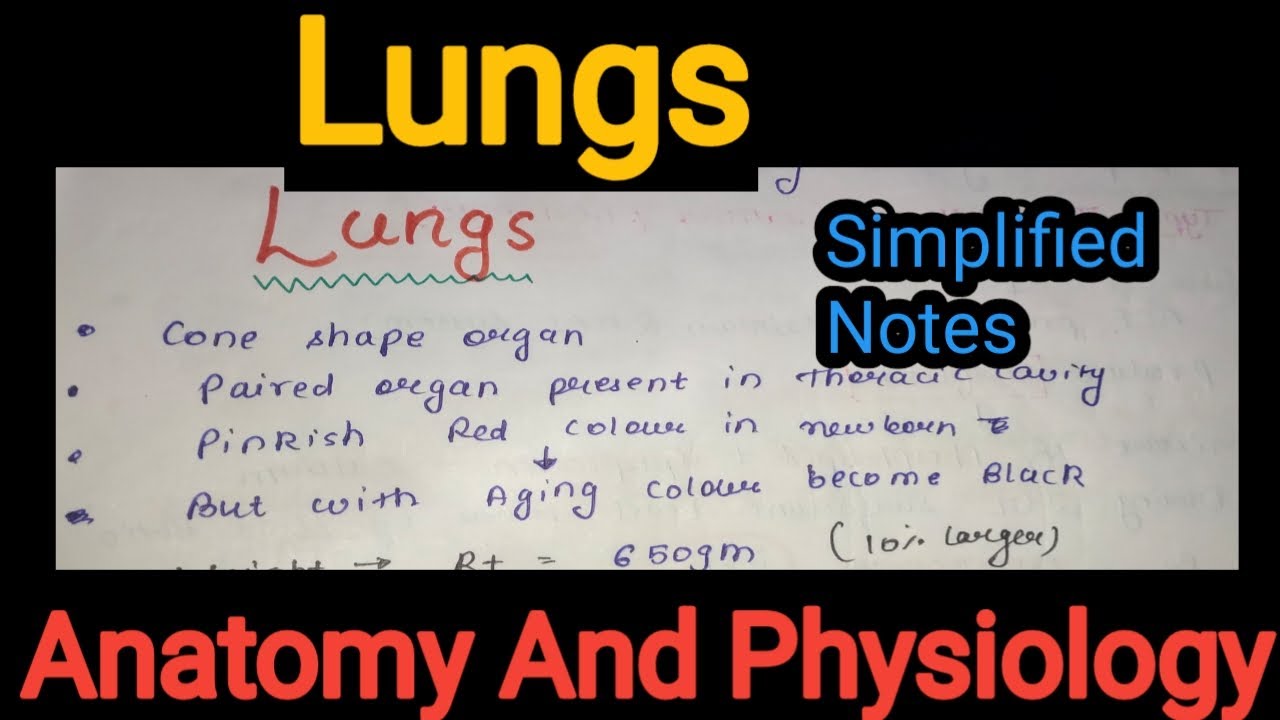 Lungs
Lungs
Simplified
Notes
• Cone shape organ
• Paired organ present in Thoracic cavity
• Pinkish Red colour in newborn
↓
• But with Aging colour become Black
Weight → Rt = 650gm (10% larger)
Anatomy And Physiology